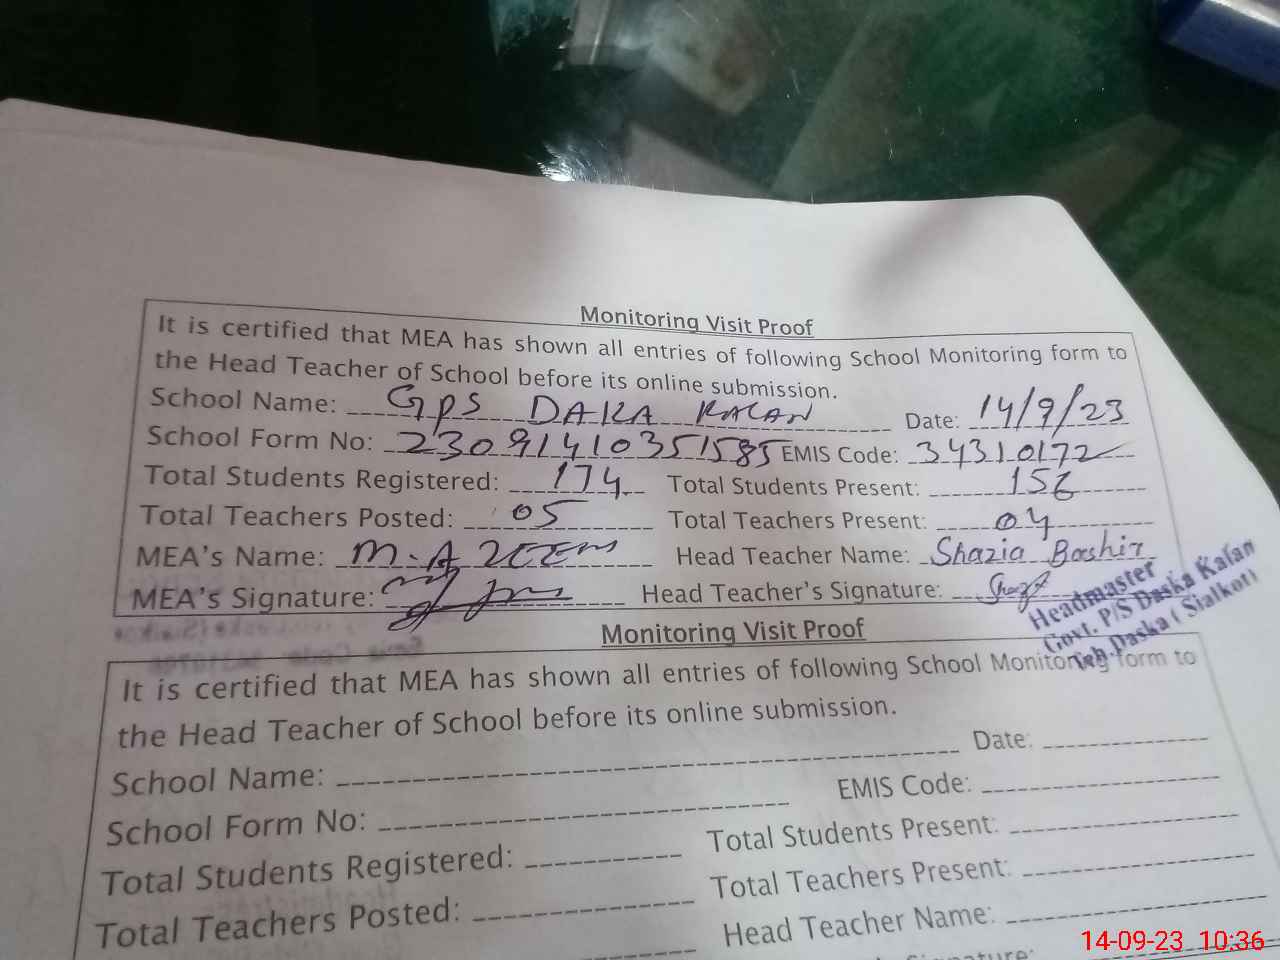 Monitoring Visit Proof
It is certified that MEA has shown all entries of following School Monitoring form to
the Head Teacher of School before its online submission.
School Name: GPS DAKA KALAN Date: 14/9/23
School Form No: 23091410351585 EMIS Code: 34310172
Total Students Registered: 174 Total Students Present: 156
Total Teachers Posted: 05 Total Teachers Present: 04
MEA's Name: M.AZEEM Head Teacher Name: Shazia Bashir
MEA's Signature: Head Teacher's Signature:
Headmaster
Govt. P/S Daska Kalan
Teh. Daska (Sialkot)
Monitoring Visit Proof
It is certified that MEA has shown all entries of following School Monitoring form to
the Head Teacher of School before its online submission.
School Name: Date:
School Form No: EMIS Code:
Total Students Registered: Total Students Present:
Total Teachers Posted: Total Teachers Present:
Head Teacher Name:
14-09-23 10:36